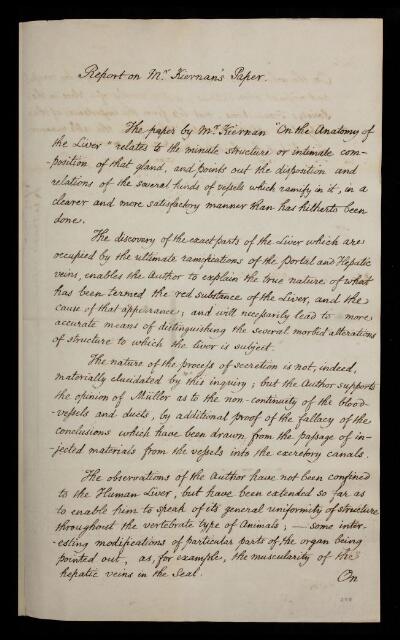 Report on Mr. Kiernan's Paper.
The paper by Mr. Kiernan "On the Anatomy of
the Liver" relates to the minute structure or intimate com-
-position of that gland, and points out the disposition and
relations of the several kinds of vessels which ramify in it, in a
clearer and more satisfactory manner than has hitherto been
done.
The discovery of the exact parts of the Liver which are
occupied by the ultimate ramifications of the Portal and Hepatic
veins, enables the Author to explain the true nature of what
has been termed the red substance of the Liver, and the
cause of that appearance; and will necessarily lead to more
accurate means of distinguishing the several morbid alterations
of structure to which the liver is subject.
The nature of the process of secretion is not, indeed,
materially elucidated by this inquiry; but the Author supports
the opinion of Müller as to the non-continuity of the blood-
-vessels and ducts, by additional proof of the fallacy of the
conclusions which have been drawn from the passage of in-
-jected materials from the vessels into the excretory canals.
The observations of the Author have not been confined
to the Human Liver, but have been extended so far as
to enable him to speak of its general uniformity of structure
throughout the vertebrate type of Animals; — some inter-
-esting modifications of particular parts of the organ being
pointed out, as, for example, the muscularity of the
hepatic veins in the Seal.
On